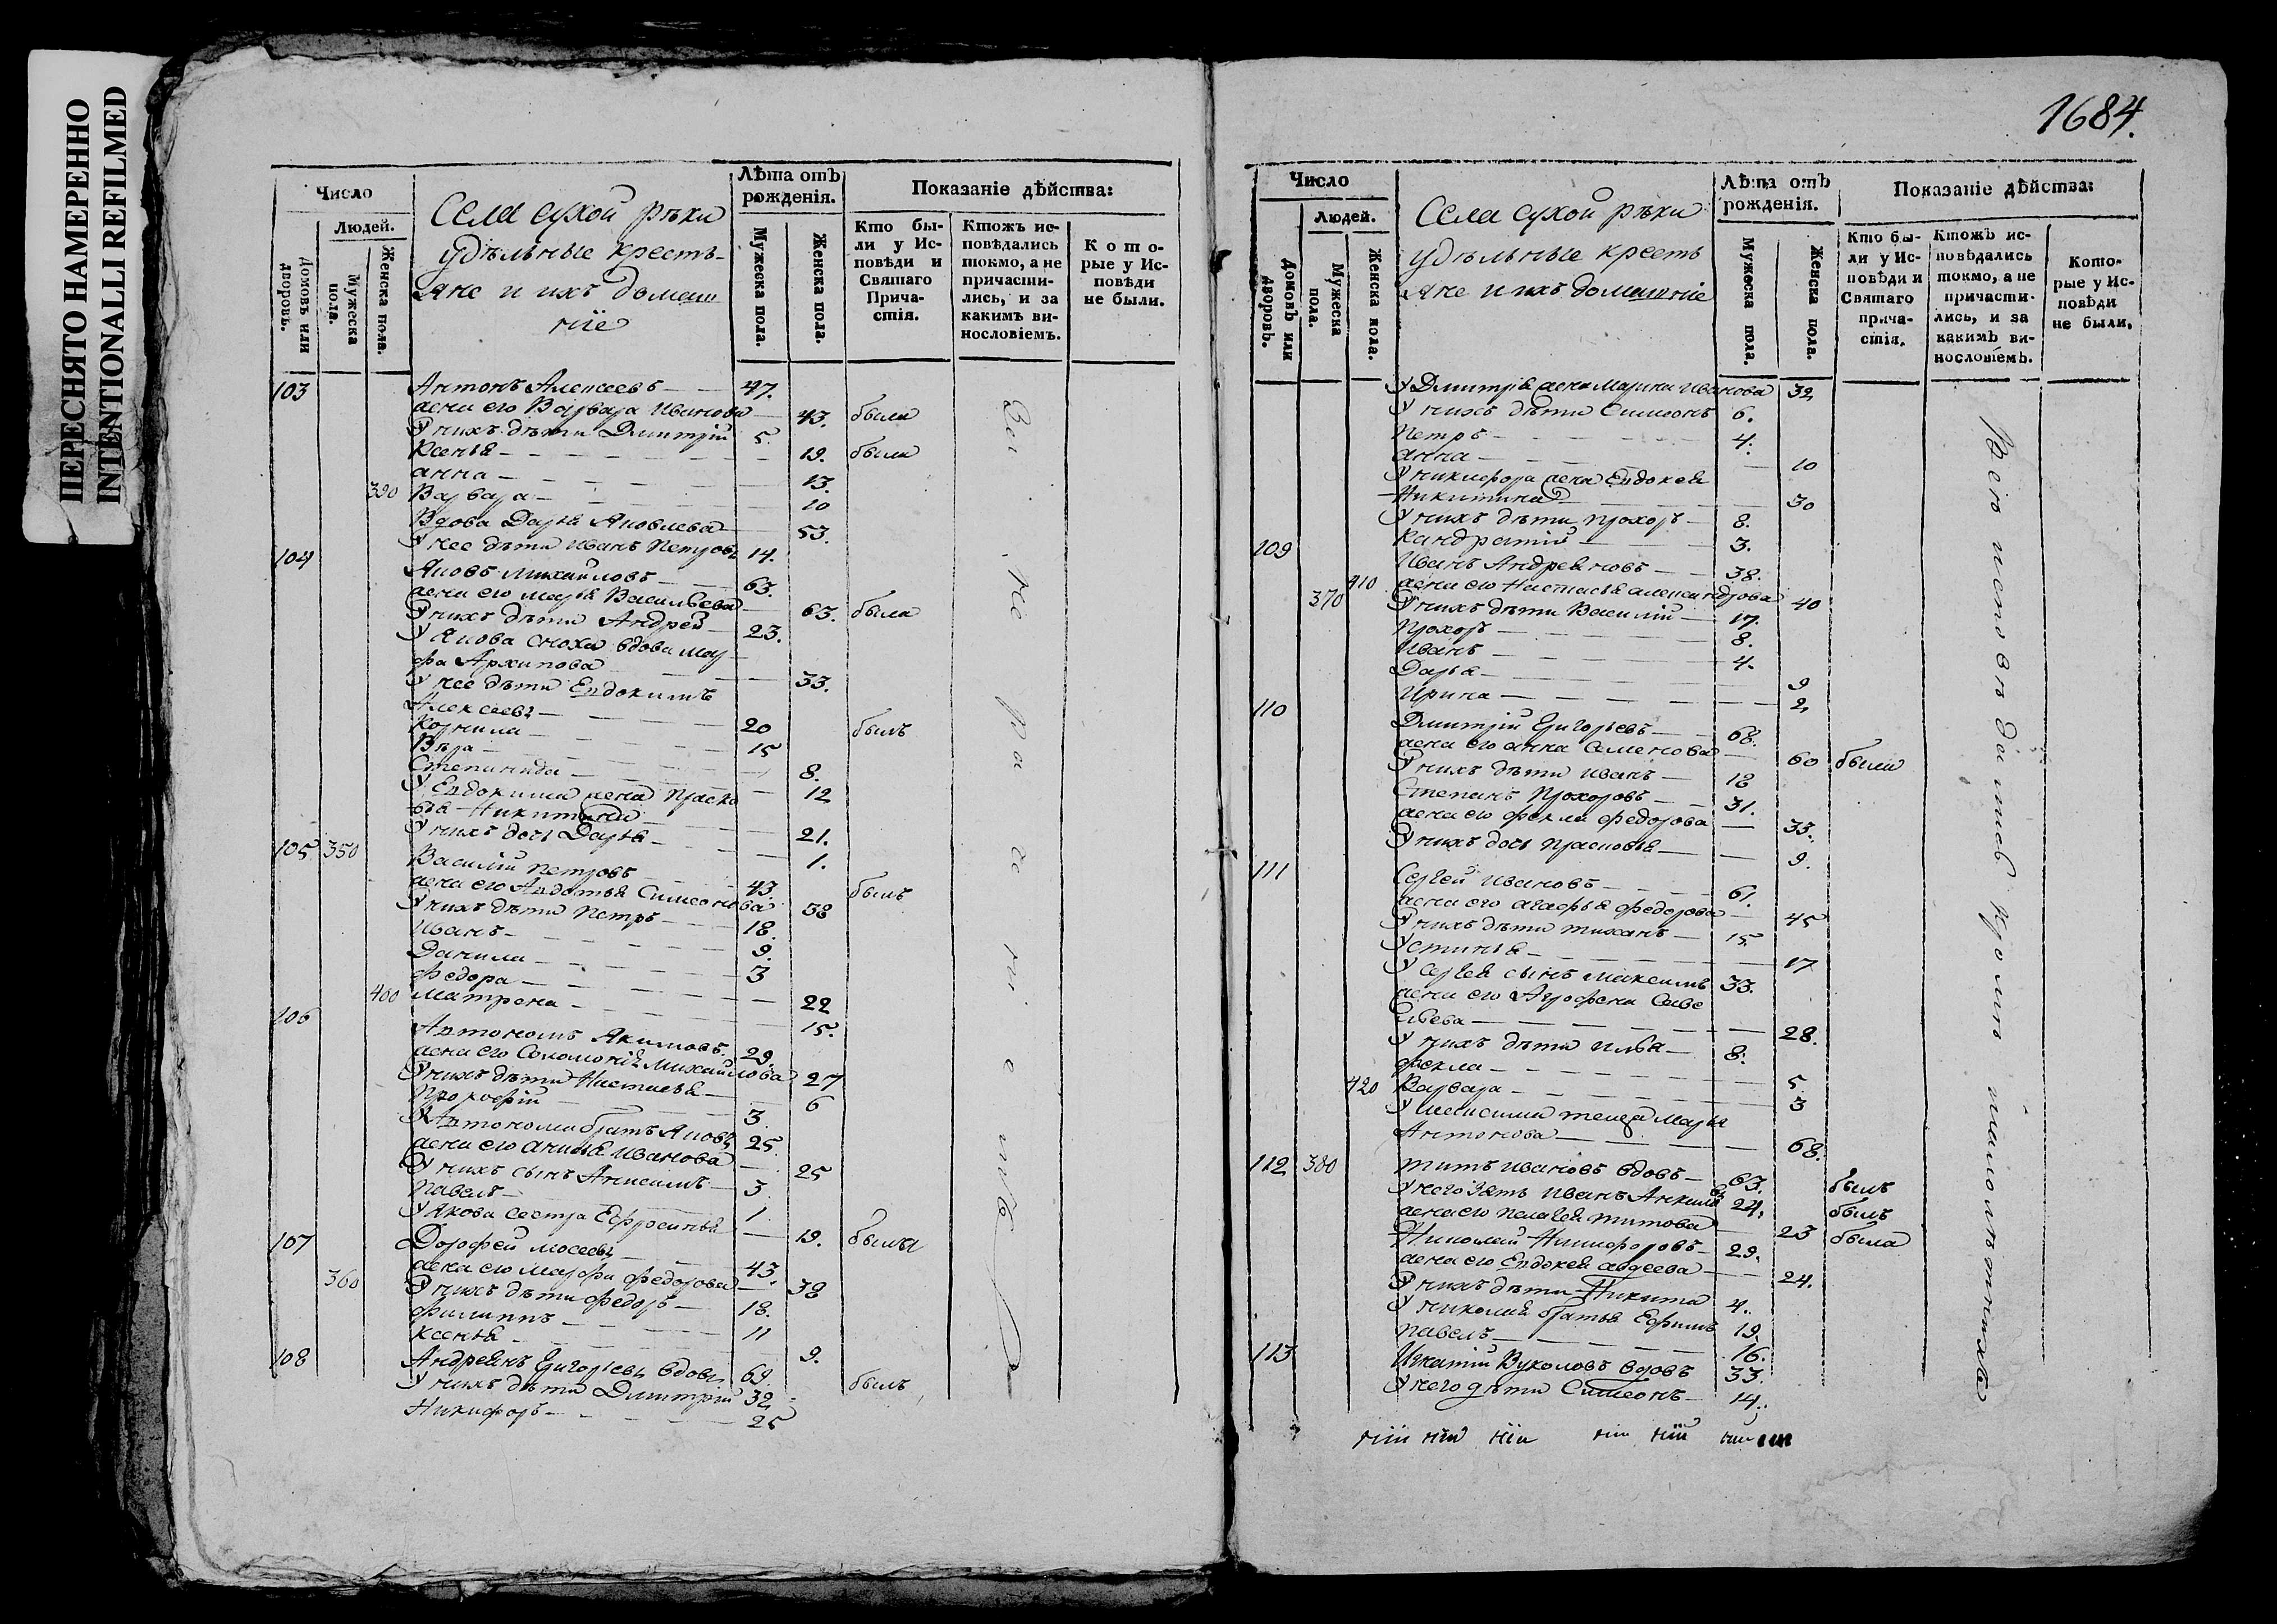 ПЕРЕСНЯТО НАМЕРЕННО
INTENTIONALLI REFILMED
Число
Людей.
Домовъ или дворовъ.
Мужеска пола.
Женска пола.
Села сухой рѣки
удѣльные кресть-
яне и ихъ домаш
ніе
Лѣта отъ рожденія.
Мужеска пола.
Женска пола.
Показаніе дѣйства:
Кто бы-
ли у Ис-
повѣди и
Святаго
Прича-
стія.
Ктожъ ис-
повѣдались
токмо, а не
причасти-
лись, и за
какимъ ви-
нословіемъ.
Кото-
рые у Ис-
повѣди
не были.
103 Антонъ Алексеевъ 47.
жена его Варвара Иванова 43. была
У нихъ дѣти Дмитрій 5.
Ксенья 19. была
анна 13.
390 Варвара 10
Вдова Дарья Яковлева 53.
У нее дѣти Иванъ Петровъ 14.
104 Яковъ Михайловъ 63.
жена его марья Васильева 63. была
У нихъ дѣти Андрей 23.
У Якова сноха вдова мар
фа Архипова 33.
У нее дѣти Евдокимъ
Алексеевъ 20 былъ
Корнила 15
Вѣра 8.
Степанида 12
У Евдокима жена Праско
вья Никитина 21.
У нихъ дочь Дарья 1.
105 350 Василій Петровъ 43. былъ
жена его Авдотья Симеонова 38
У нихъ дѣти Петръ 18.
Иванъ 9.
Данила 3
Федора 22
400 Матрена 15.
106 Автономъ Якимовъ 29.
жена его Соломонія Михайлова 27
У нихъ дѣти Настасья 6
Прокофій 3.
У Автонома братъ Яковъ 25.
жена его Анисья Иванова 25
У нихъ сынъ Анисимъ 3
Павелъ 1
У Якова сестра Ефросинья 19. была
107 Дорофей мосеевъ 43.
жена его Марфа Федорова 38
360 У нихъ дѣти Федоръ 18.
Филиппъ 11
Ксенья 9.
108 Андреянъ Григорьевъ вдовъ 69. былъ
У нихъ дѣти Димитрій 32
Никифоръ 25
1684.
Число
Людей.
Домовъ или дворовъ.
Мужеска пола.
Женска пола.
Села сухой рѣки
удѣльные кресть
яне и ихъ домашніе
Лѣта отъ рожденія.
Мужеска пола.
Женска пола.
Показаніе дѣйства:
Кто бы-
ли у Ис-
повѣди и
Святаго
прича-
стія.
Ктожъ ис-
повѣдались
токмо, а не
причасти-
лись, и за
какимъ ви-
нословіемъ.
Кото-
рые у Ис-
повѣди
не были.
У Дмитрія жена Марина Иванова 32
У нихъ дѣти Симеонъ 6.
Петръ 4.
анна 10
У никифора жена Евдокея
Никитина 30
У нихъ дѣти прохоръ 8.
Кандратій 3.
109 Иванъ Андреяновъ 38.
410 жена его Настасья александрова 40
370 У нихъ дѣти Василій 17.
Прохоръ 8.
Иванъ 4.
Дарья 9
Ирина 2
110 Дмитрій Григорьевъ 68.
жена его анна Семенова 60 была
У нихъ дѣти иванъ 18
Степанъ Прохоровъ 31.
жена его фекла федорова 33.
У нихъ дочь прасковья 9.
111 Сергей ивановъ 61.
жена его агафья федорова 45
У нихъ дѣти тиханъ 15.
Устинья 17
У сергея сынъ максимъ 33.
жена его Аграфена Саве
льева 28.
У нихъ дѣти илья 8.
фекла 5.
420 Варвара 3
У максима теща Марья
Антонова 68.
112 380 титъ ивановъ вдовъ 63. былъ
У него зять иванъ 24. былъ
жена его пелагея титова 23 была
Николай Никифоровъ 29.
жена его Евдокея авдеева 24.
У нихъ дѣти Никита 4.
У николая братья Ефимъ 19.
павелъ 16.
113 Игнатій Вуколовъ вдовъ 33.
У него дѣти Симеонъ 14.